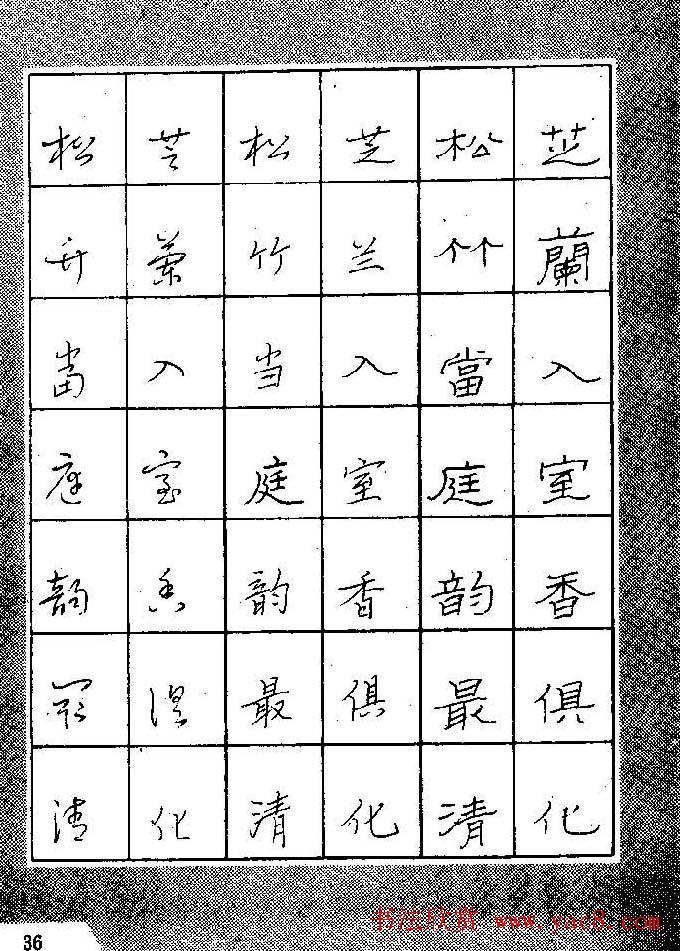 芝蘭入室香俱化
松竹當庭韵最清
芝兰入室香俱化
松竹当庭韵最清
芝蘭入室香俱化
松竹當庭韵最清
书法欣赏 www.yac8.com
36